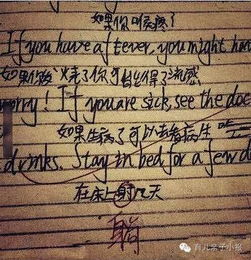 如果你喉疼了
If you have a fever, you might hav
如果你发烧了你可能得了流感
worry! If you are sick, see the doc
如果生病了可以去看病生
drinks. Stay in bed for a few d
在床上躺几天
育儿亲子小报